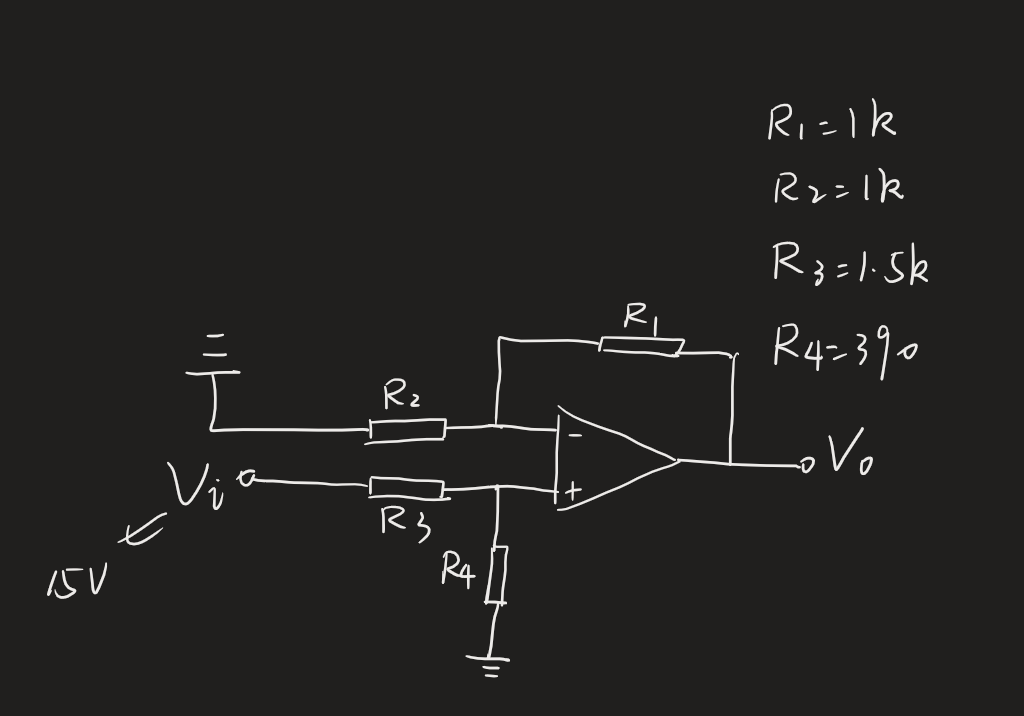 R₁=1k
R₂=1k
R₃=1.5k
R₄=390
R₁
R₂
-
Vi
Vo
+
R₃
R₄
15V